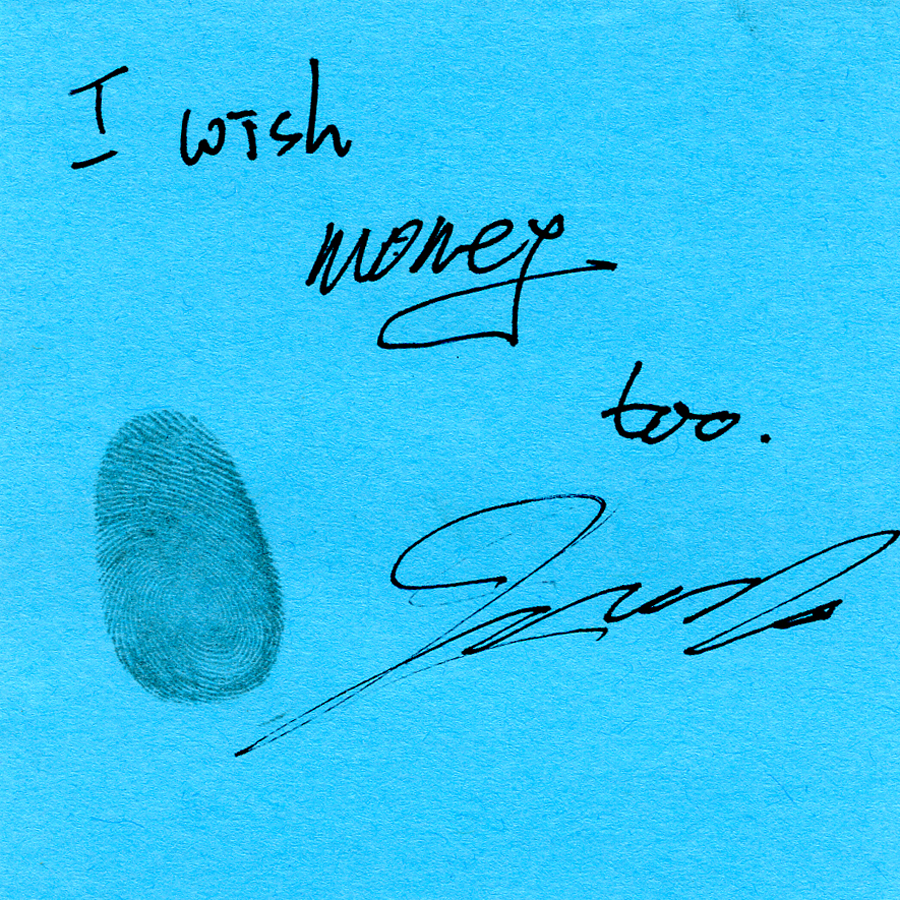 I wish
money
too.